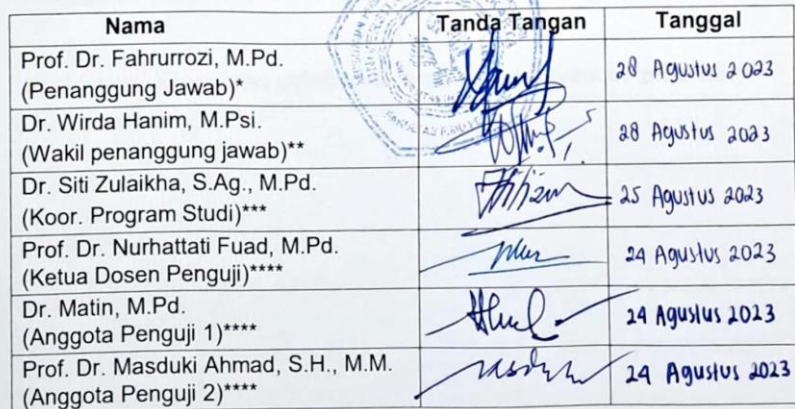 Nama Tanda Tangan Tanggal
Prof. Dr. Fahrurrozi, M.Pd.
(Penanggung Jawab)* 28 Agustus 2023
Dr. Wirda Hanim, M.Psi.
(Wakil penanggung jawab)** 28 Agustus 2023
Dr. Siti Zulaikha, S.Ag., M.Pd.
(Koor. Program Studi)*** 25 Agustus 2023
Prof. Dr. Nurhattati Fuad, M.Pd.
(Ketua Dosen Penguji)**** 24 Agustus 2023
Dr. Matin, M.Pd.
(Anggota Penguji 1)**** 24 Agustus 2023
Prof. Dr. Masduki Ahmad, S.H., M.M.
(Anggota Penguji 2)**** 24 Agustus 2023